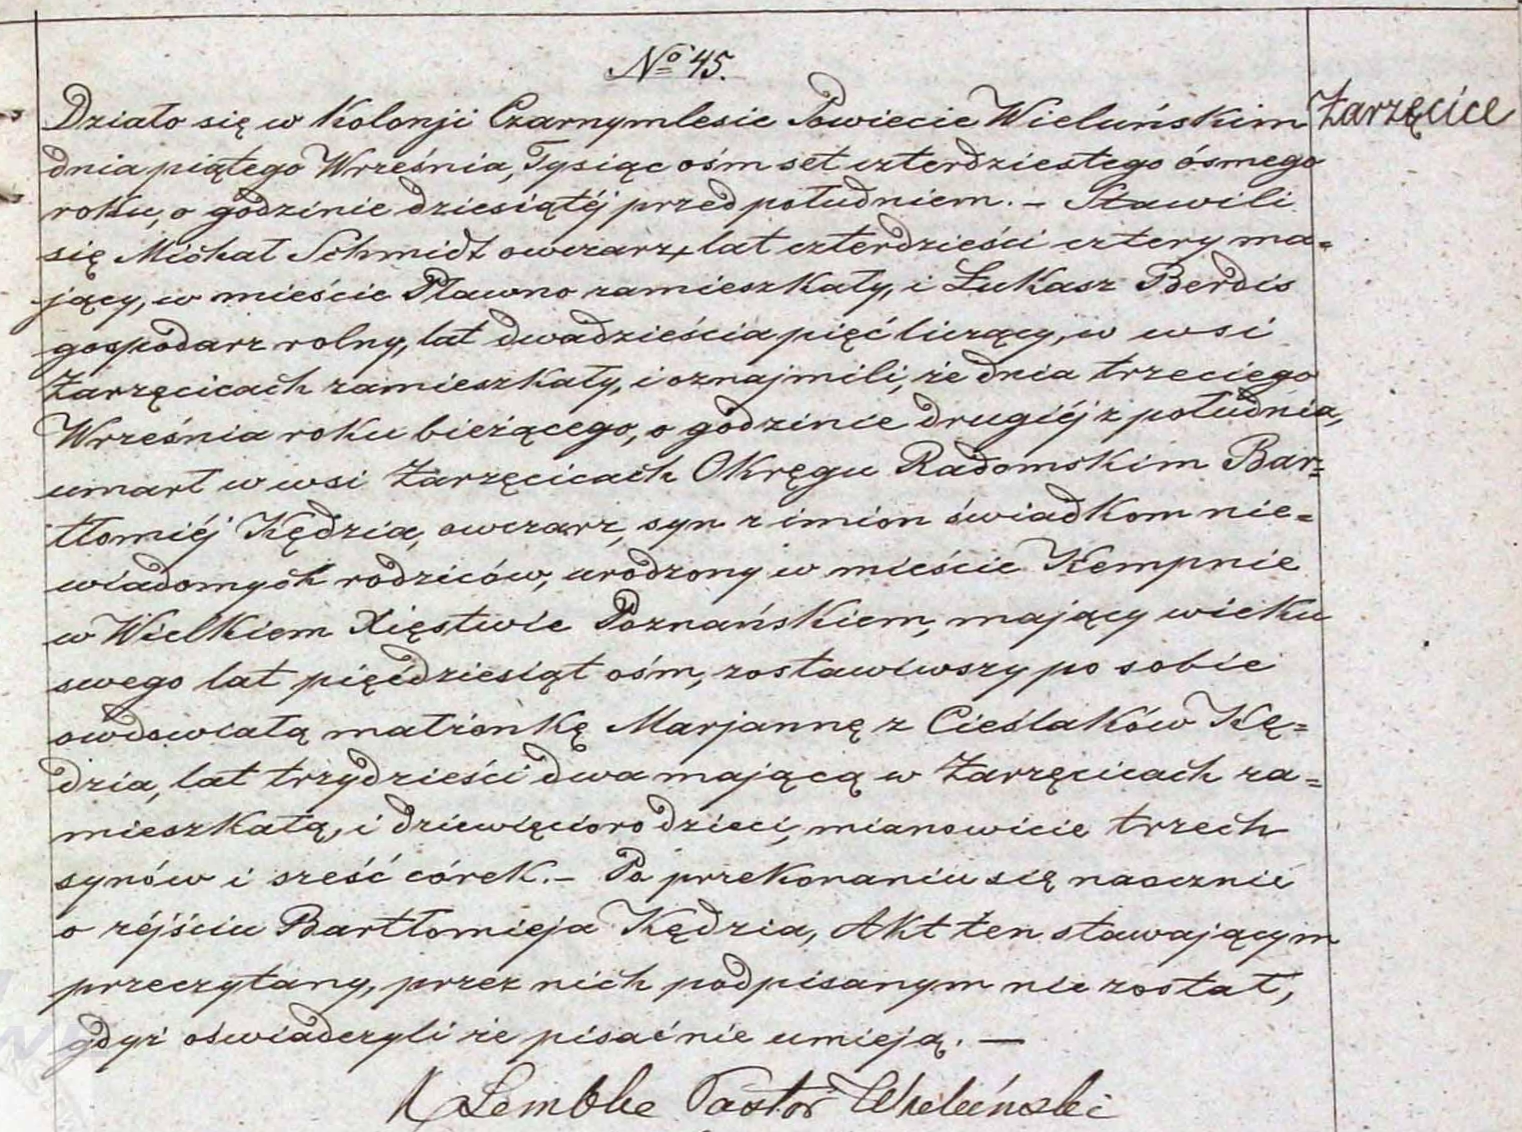 № 45.
Działo się w Kolonji Czarnymlesie Powiecie Wieluńskim
Żarzęcice
dnia piątego Września, Tysiąc ośm set czterdziestego ósmego
roku, o godzinie dziesiątéj przed południem. – Stawili
się Michał Schmidt owczarz, lat czterdzieści cztery ma=
jący, w mieście Pławno zamieszkały, i Łukasz Berdis
gospodarz rolny, lat dwadzieścia pięć liczący, w wsi
Żarzęcicach zamieszkały, i oznajmili, że dnia trzeciego
Września roku bieżącego, o godzinie drugiéj z południa,
umarł w wsi Żarzęcicach Okręgu Radomskim Bar=
tłomiéj Kędzia, owczarz, syn z imion świadkom nie=
wiadomych rodziców, urodzony w mieście Kempnie
w Wielkiem Xięstwie Poznańskiem, mający wieku
swego lat pięćdziesiąt ośm, zostawiwszy po sobie
owdowiałą małżonkę Marjannę z Cieślaków Kę=
dzia, lat trzydzieści dwa mającą w Żarzęcicach za=
mieszkałą, i dziewięcioro dzieci, mianowicie trzech
synów i sześć córek. – Po przekonaniu się naocznie
o zéjściu Bartłomieja Kędzia, Akt ten stawającym
przeczytany, przez nich podpisanym nie został,
gdyż oświadczyli że pisać nie umieją. —
Lembke Pastor Wieluński